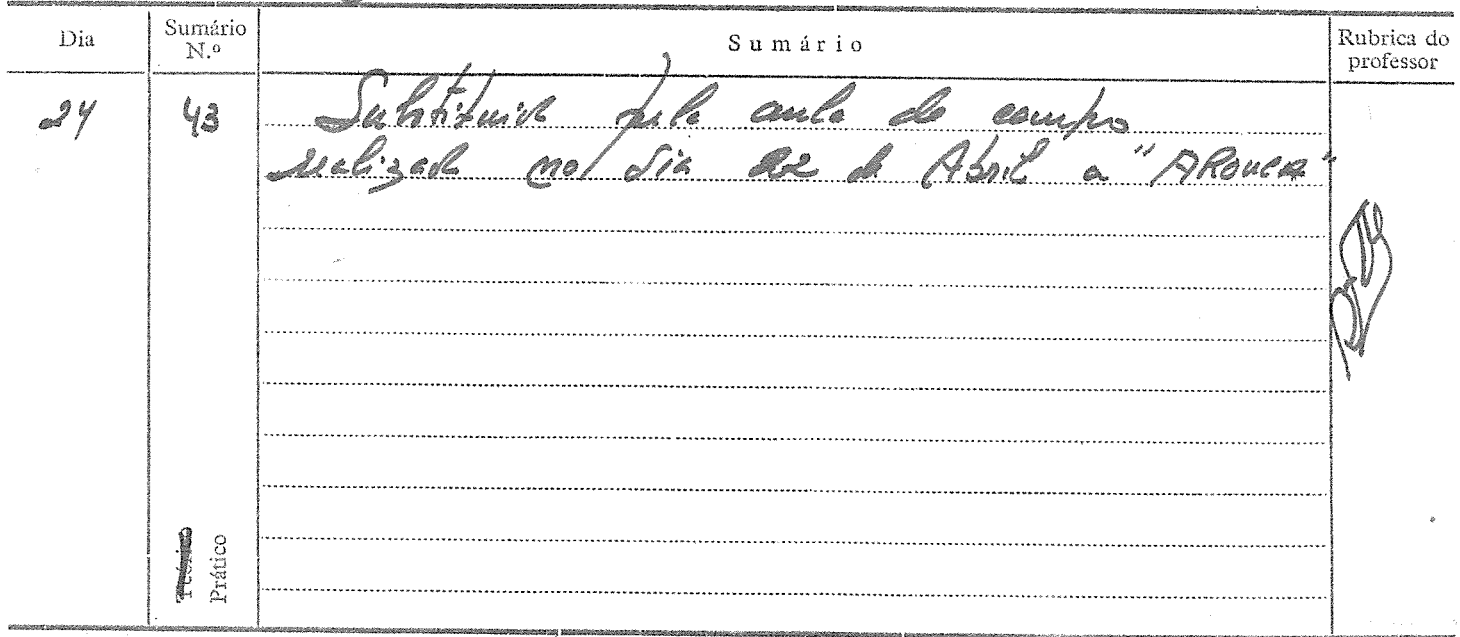 Dia
Sumário N.º
Sumário
Rubrica do professor
24
43
Substituida pela aula de campo
realizada no dia 22 de Abril a "AROUCA"
Teórico
Prático